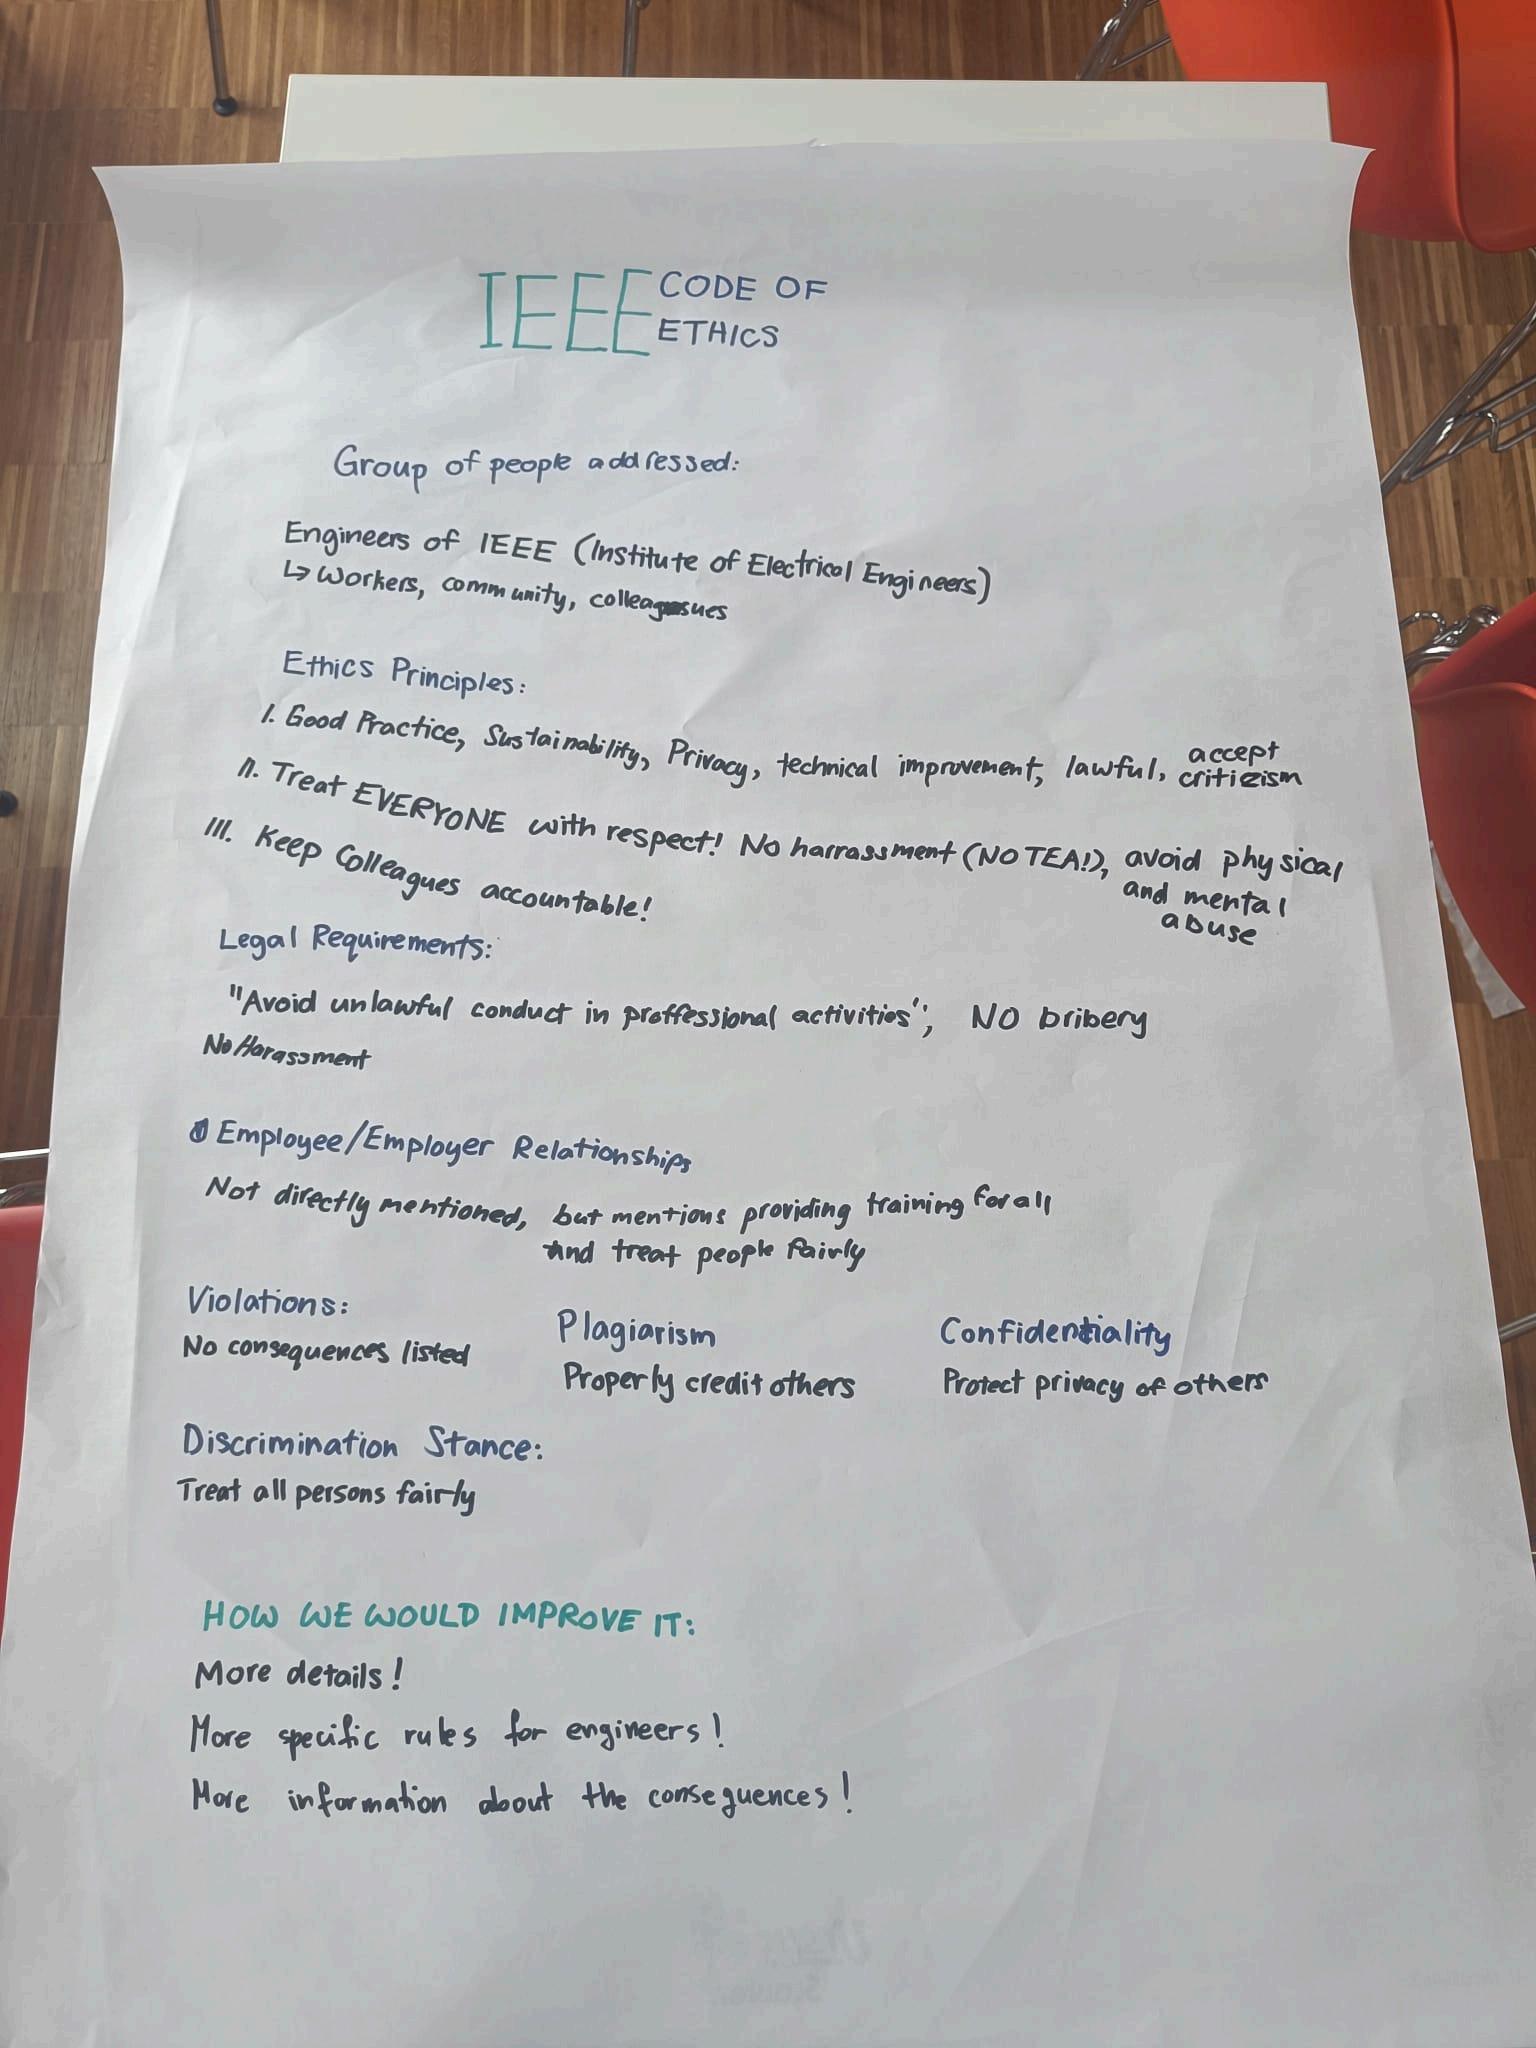 IEEE CODE OF
ETHICS
Group of people addressed:
Engineers of IEEE (Institute of Electrical Engineers)
↳ Workers, community, colleagues
Ethics Principles:
I. Good Practice, Sustainability, Privacy, technical improvement, lawful, accept
criticism
II. Treat EVERYONE with respect! No harrassment (NO TEA!), avoid physical
and mental
abuse
III. Keep Colleagues accountable!
Legal Requirements:
"Avoid unlawful conduct in proffessional activities", NO bribery
No Harassment
Employee/Employer Relationships
Not directly mentioned, but mentions providing training for all
and treat people fairly
Violations:
No consequences listed
Plagiarism
Properly credit others
Confidentiality
Protect privacy of others
Discrimination Stance:
Treat all persons fairly
HOW WE WOULD IMPROVE IT:
More details!
More specific rules for engineers!
More information about the consequences!